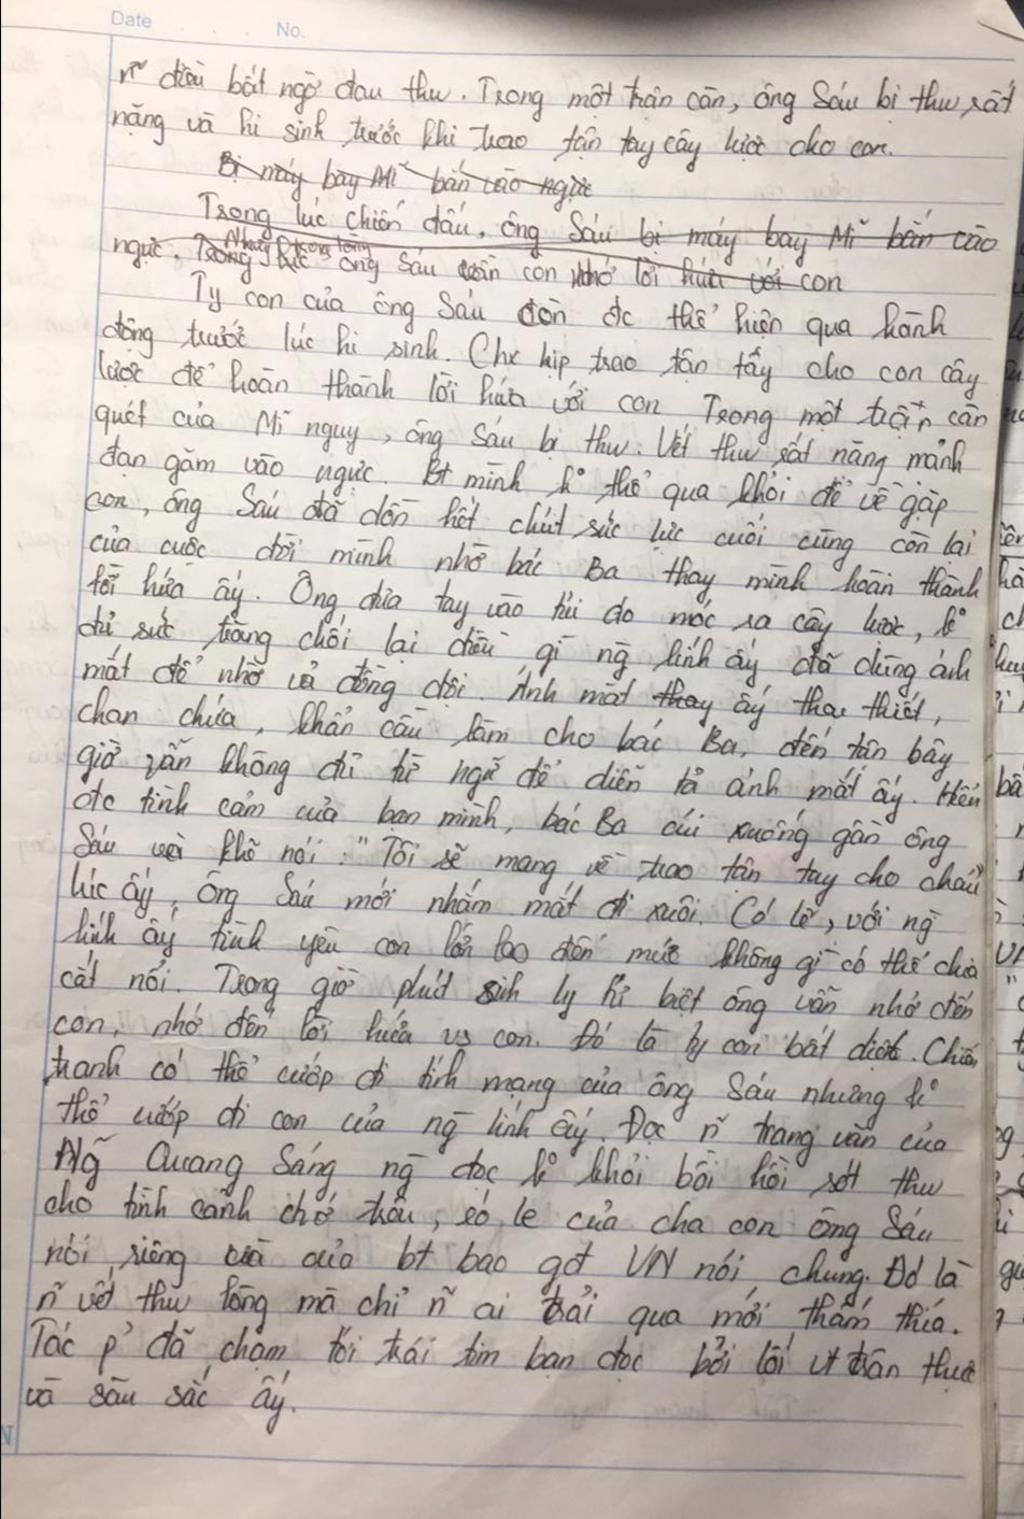 Date No.
n~ điều bất ngờ đau thw. Trong một trận càn, ông Sáu bị thw rất
nặng và hi sinh trước khi trao tận tay cây lược cho con.
Bị máy bay Mĩ bắn vào ngực
Trong lúc chiến đấu, ông Sáu bị máy bay Mĩ bắn vào
ngực. Trong lúc ông Sáu vẫn con nhớ lời hứa với con
Nhưng trong lòng
Ty con của ông Sáu còn đc thể hiện qua hành
động trước lúc hi sinh. Chx kịp trao tận tấy cho con cây
lược để hoàn thành lời hứa với con Trong một trận càn
quét của Mĩ nguy, ông Sáu bị thw. Vết thw rất nặng mảnh
đạn găm vào ngực. Bt mình k° thể qua khỏi để về gặp
con, ông Sáu đã dồn hết chút sức lực cuối cùng còn lại
của cuộc đời mình nhờ bác Ba thay mình hoàn thành
lời hứa ấy. Ông đưa tay vào túi áo móc ra cây lược, k°
đủ sức trăng chối lại điều gì ng lính ấy đã dùng ánh
mắt để nhờ vả đồng đội. Ánh mắt thay ấy tha thiết,
chan chứa, khẩn cầu làm cho bác Ba, đến tận bây
giờ vẫn không đủ từ ngữ để diễn tả ánh mắt ấy. Hiểu
đc tình cảm của bạn mình, bác Ba cúi xuống gần ông
Sáu và khẽ nói: "Tôi sẽ mang về trao tận tay cho cháu"
lúc ấy, ông Sáu mới nhắm mắt đi xuôi. Có lẽ, với ng
lính ấy tình yêu con lớn lao đến mức không gì có thể chia
cắt nổi. Trong giờ phút sinh ly tử biệt ông vẫn nhớ đến
con, nhớ đến lời hứa vs con. Đó là ty con bất diệt. Chiến
tranh có thể cướp đi tính mạng của ông Sáu nhưng k°
thể cướp đi con của ng lính ấy. Đọc n~ trang văn của
Ng~ Quang Sáng ng đọc k° khỏi bồi hồi xót thw
cho tình cảnh chớ trêu, éo le của cha con ông Sáu
nói riêng và của bt bao gđ VN nói chung. Đó là
n~ vết thw lòng mà chỉ n~ ai trải qua mới thấm thía.
Tác p° đã chạm tới trái tim bạn đọc bởi lối vt chân thực
và sâu sắc ấy.